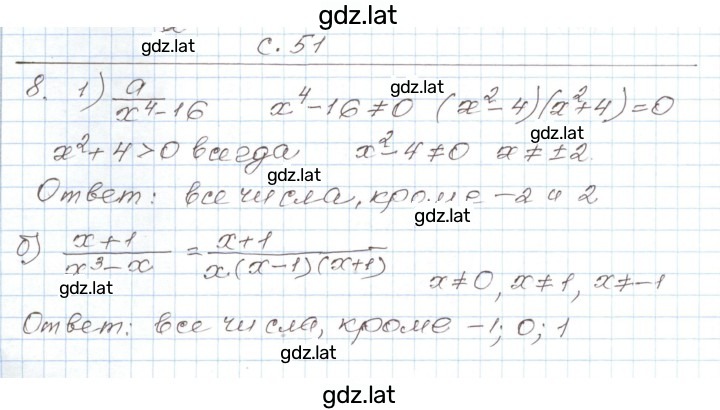 gdz.lat
gdz.lat с. 51
8. 1) a/(x⁴-16) x⁴-16≠0 (x²-4)(x²+4)=0
gdz.lat
gdz.lat
x²+4>0 всегда x²-4≠0 x≠±2
gdz.lat
Ответ: все числа, кроме -2 и 2
gdz.lat
б) (x+1)/(x³-x) = (x+1)/(x(x-1)(x+1))
x≠0, x≠1, x≠-1
gdz.lat
Ответ: все числа, кроме -1; 0; 1
gdz.lat
gdz.lat